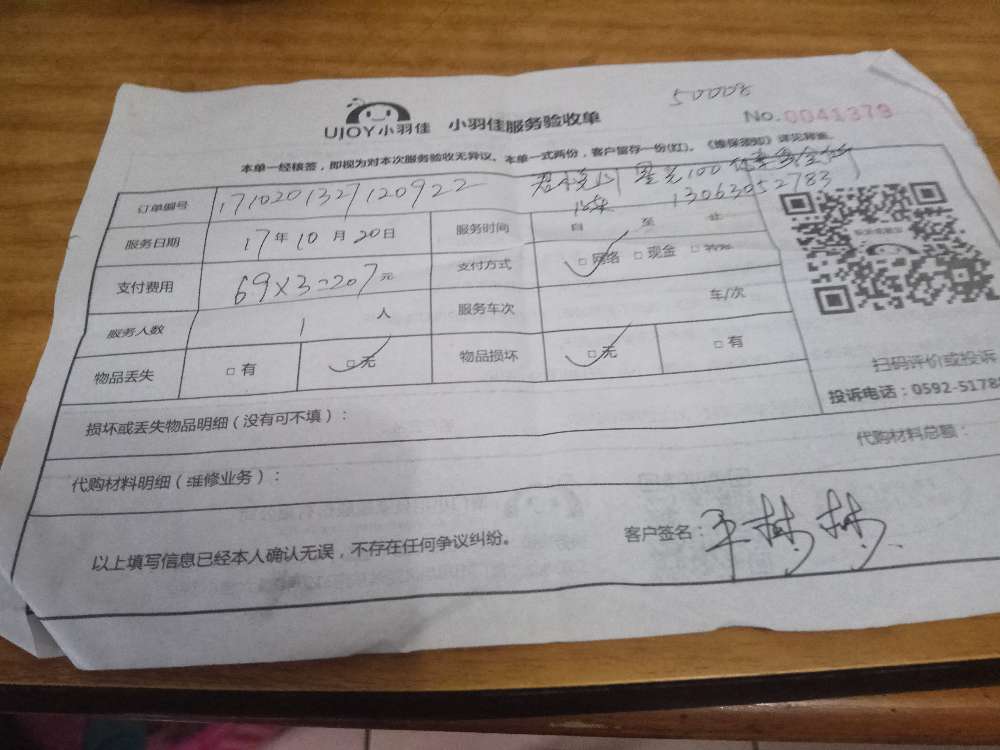 50008
UJOY小羽佳 小羽佳服务验收单 No.0041379
本单一经核签，即视为对本次服务验收无异议。本单一式两份，客户留存一份(红)。《维保须知》详见背面。
订单编号 1710201327120922 星光100
13063052783
服务日期 17年10月20日 服务时间 自 至 止
支付费用 69×3=207元 支付方式 □网络 □现金 □转账
服务人数 1 人 服务车次 车/次
物品丢失 □有 □无 物品损坏 □无 □有
扫码评价或投诉
投诉电话：0592-5178
损坏或丢失物品明细（没有可不填）：
代购材料明细（维修业务）： 代购材料总额：
以上填写信息已经本人确认无误，不存在任何争议纠纷。 客户签名：